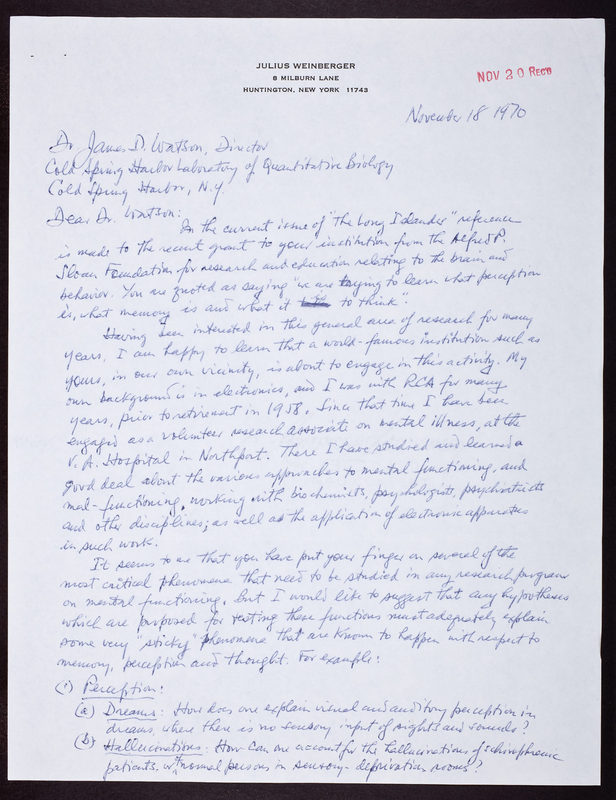 JULIUS WEINBERGER
8 MILBURN LANE
HUNTINGTON, NEW YORK 11743
NOV 20 REC'D
November 18 1970
Dr. James D. Watson, Director
Cold Spring Harbor Laboratory of Quantitative Biology
Cold Spring Harbor, N.Y.
Dear Dr. Watson:
In the current issue of "The Long Islander" reference
is made to the recent grant to your institution from the Alfred P.
Sloan Foundation for research and education relating to the brain and
behavior. You are quoted as saying "we are trying to learn what perception
is, what memory is and what it is to think".
Having been interested in this general area of research for many
years, I am happy to learn that a world-famous institution such as
yours, in our own vicinity, is about to engage in this activity. My
own background is in electronics, and I was with RCA for many
years, prior to retirement in 1958. Since that time I have been
engaged as a volunteer research associate on mental illness, at the
V.A. Hospital in Northport. There I have studied and learned a
good deal about the various approaches to mental functioning, and
mal-functioning, working with biochemists, psychologists, psychiatrists
and other disciplines; as well as the application of electronic apparatus
in such work.
It seems to me that you have put your finger on several of the
most critical phenomena that need to be studied in any research program
on mental functioning. But I would like to suggest that any hypotheses
which are proposed for testing these functions must adequately explain
some very "sticky" phenomena that are known to happen with respect to
memory, perception and thought. For example:
(1) Perception:
(a) Dreams: How does one explain visual and auditory perception in
dreams, where there is no sensory input of sights and sounds?
(b) Hallucinations: How can one account for the hallucinations of schizophrenic
patients, or normal persons in sensory-deprivation rooms?